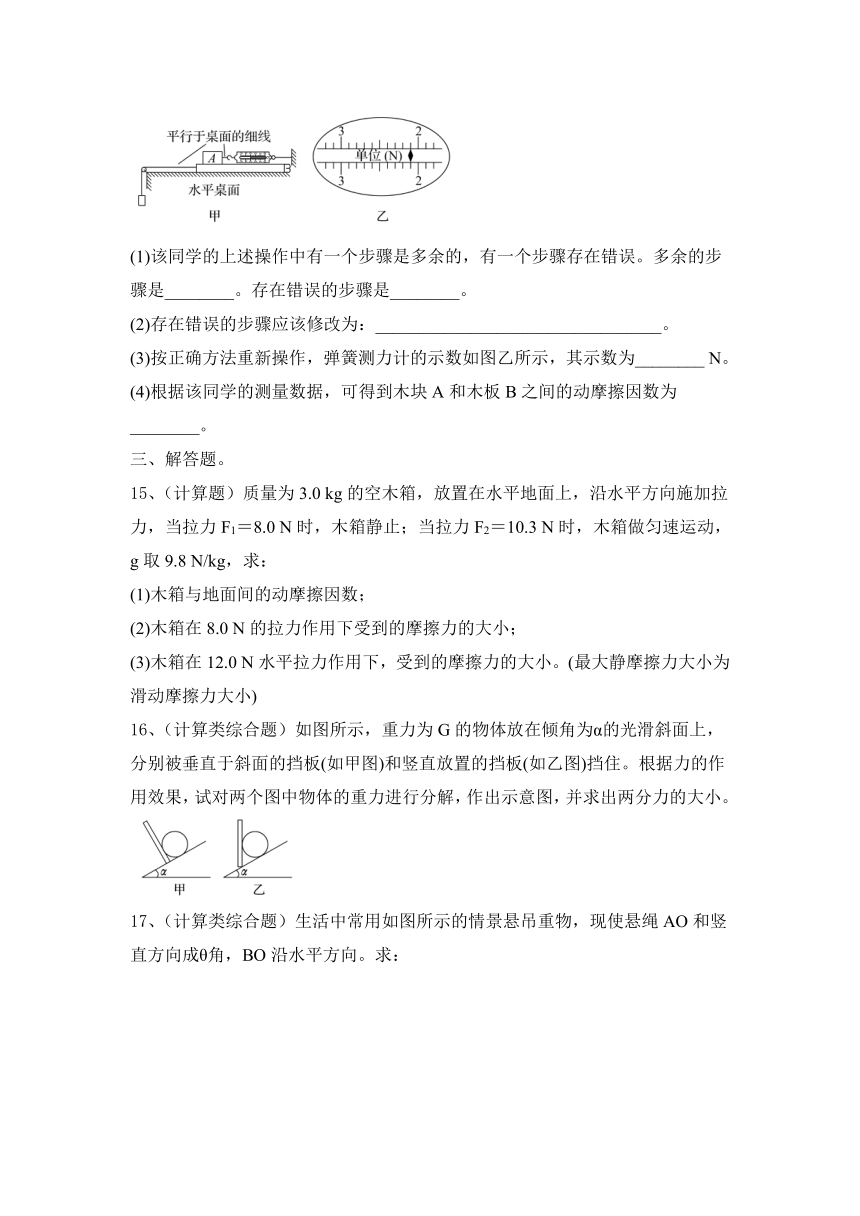 平行于桌面的细线
A
水平桌面
甲
3 2
单位(N)
3 2
乙
(1)该同学的上述操作中有一个步骤是多余的，有一个步骤存在错误。多余的步
骤是________。存在错误的步骤是________。
(2)存在错误的步骤应该修改为：_________________________________。
(3)按正确方法重新操作，弹簧测力计的示数如图乙所示，其示数为________ N。
(4)根据该同学的测量数据，可得到木块 A 和木板 B 之间的动摩擦因数为
________。
三、解答题。
15、（计算题）质量为 3.0 kg 的空木箱，放置在水平地面上，沿水平方向施加拉
力，当拉力 F₁＝8.0 N 时，木箱静止；当拉力 F₂＝10.3 N 时，木箱做匀速运动，
g 取 9.8 N/kg，求：
(1)木箱与地面间的动摩擦因数；
(2)木箱在 8.0 N 的拉力作用下受到的摩擦力的大小；
(3)木箱在 12.0 N 水平拉力作用下，受到的摩擦力的大小。(最大静摩擦力大小为
滑动摩擦力大小)
16、（计算类综合题）如图所示，重力为 G 的物体放在倾角为α的光滑斜面上，
分别被垂直于斜面的挡板(如甲图)和竖直放置的挡板(如乙图)挡住。根据力的作
用效果，试对两个图中物体的重力进行分解，作出示意图，并求出两分力的大小。
α
甲
α
乙
17、（计算类综合题）生活中常用如图所示的情景悬吊重物，现使悬绳 AO 和竖
直方向成θ角，BO 沿水平方向。求：